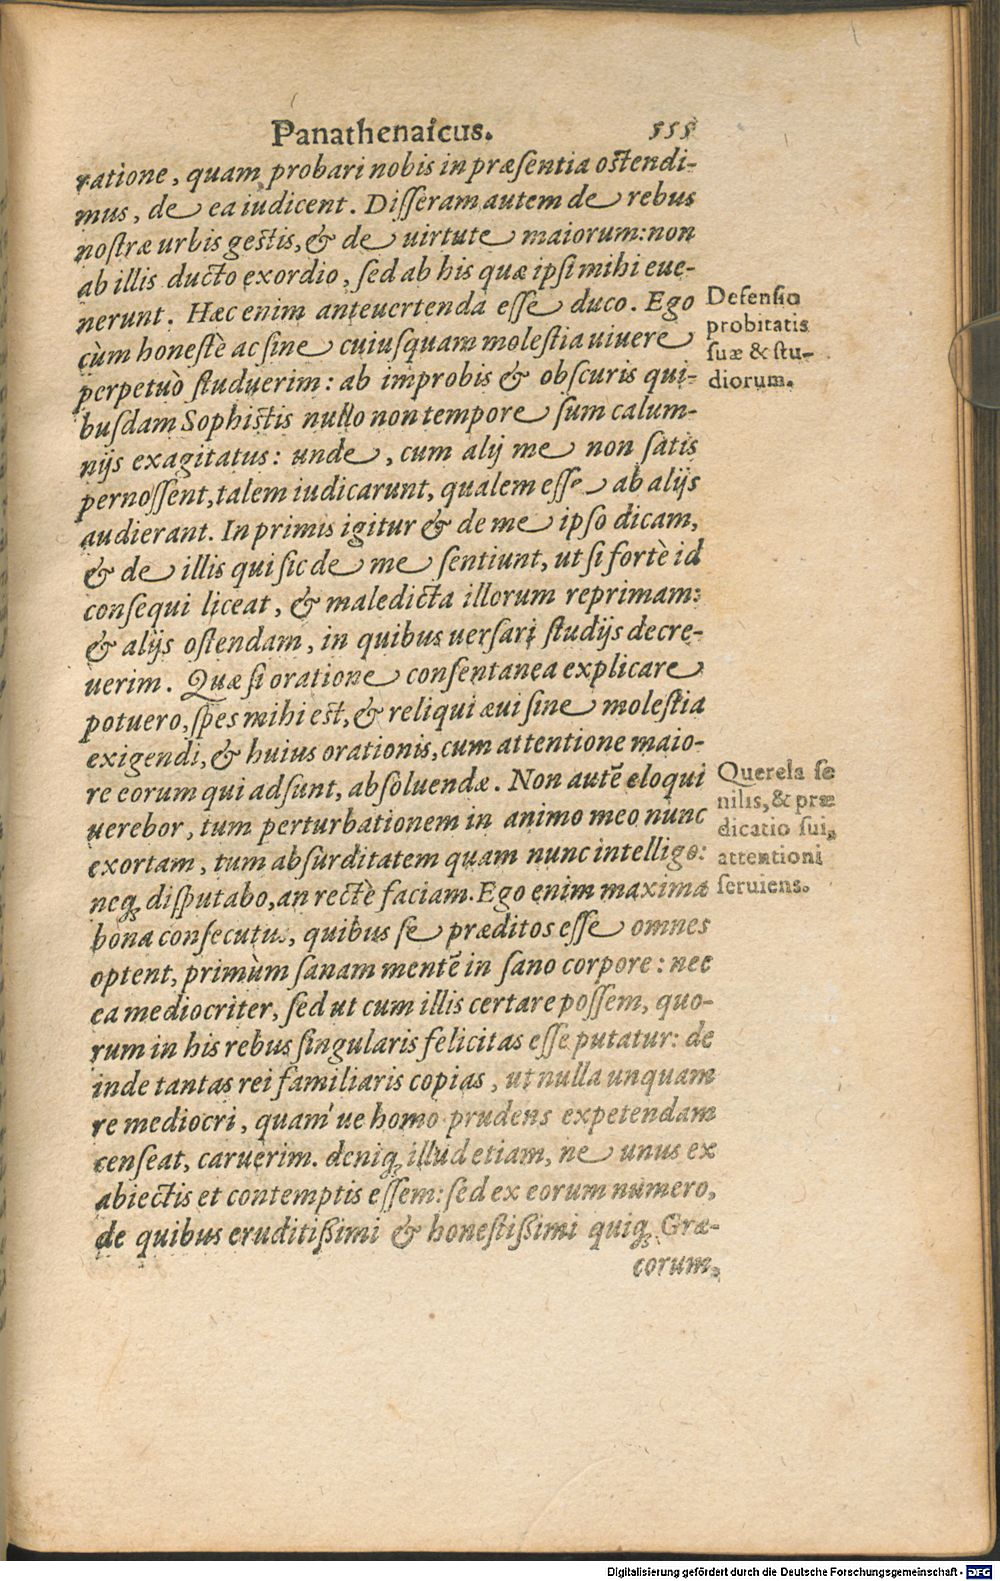 Panathenaicus. 555
ratione, quam probari nobis in præsentia ostendi-
mus, de ea iudicent. Disseram autem de rebus
nostræ urbis gestis, & de uirtute maiorum: non
ab illis ducto exordio, sed ab his quæ ipsi mihi eue-
nerunt. Hæc enim anteuertenda esse duco. Ego
cùm honestè ac sine cuiusquam molestia uiuere
perpetuò studuerim: ab improbis & obscuris qui-
busdam Sophistis nullo non tempore sum calum-
nijs exagitatus: unde, cum alij me non satis
pernossent, talem iudicarunt, qualem esse ab alijs
audierant. In primis igitur & de me ipso dicam,
& de illis qui sic de me sentiunt, ut si fortè id
consequi liceat, & maledicta illorum reprimam:
& alijs ostendam, in quibus uersari studijs decre-
uerim. Quæ si oratione consentanea explicare
potuero, spes mihi est, & reliqui æui sine molestia
exigendi, & huius orationis, cum attentione maio-
re eorum qui adsunt, absoluendæ. Non autē eloqui
uerebor, tum perturbationem in animo meo nunc
exortam, tum absurditatem quam nunc intelligo:
neq; disputabo, an rectè faciam. Ego enim maxima
bona consecutus, quibus se præditos esse omnes
optent, primùm sanam mentē in sano corpore: nec
ea mediocriter, sed ut cum illis certare possem, quo-
rum in his rebus singularis felicitas esse putatur: de
inde tantas rei familiaris copias, ut nulla unquam
re mediocri, quam'ue homo prudens expetendam
censeat, caruerim. deniq; illud etiam, ne unus ex
abiectis et contemptis essem: sed ex eorum numero,
de quibus eruditißimi & honestißimi quiq; Græ-
corum,
Defensio
probitatis
suæ & stu-
diorum.
Querela se
nilis, & præ
dicatio sui,
attentioni
seruiens.
Digitalisierung gefördert durch die Deutsche Forschungsgemeinschaft - DFG